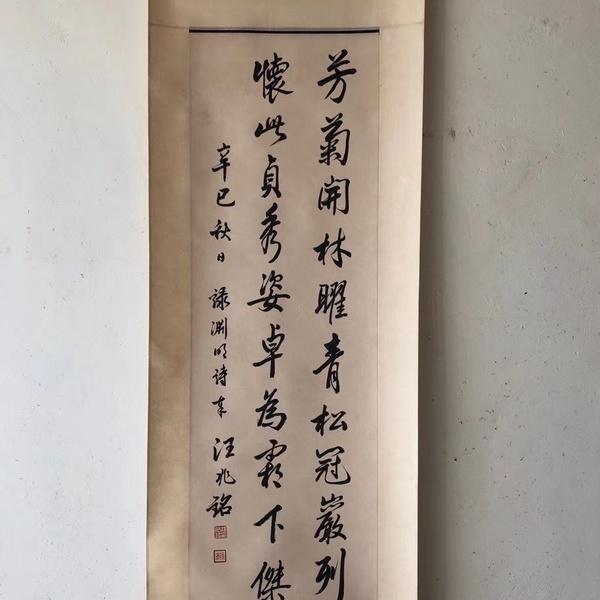 芳菊開林曜青松冠巖列
懷此貞秀姿卓為霜下傑
辛巳秋日 録淵明詩奉 汪兆銘